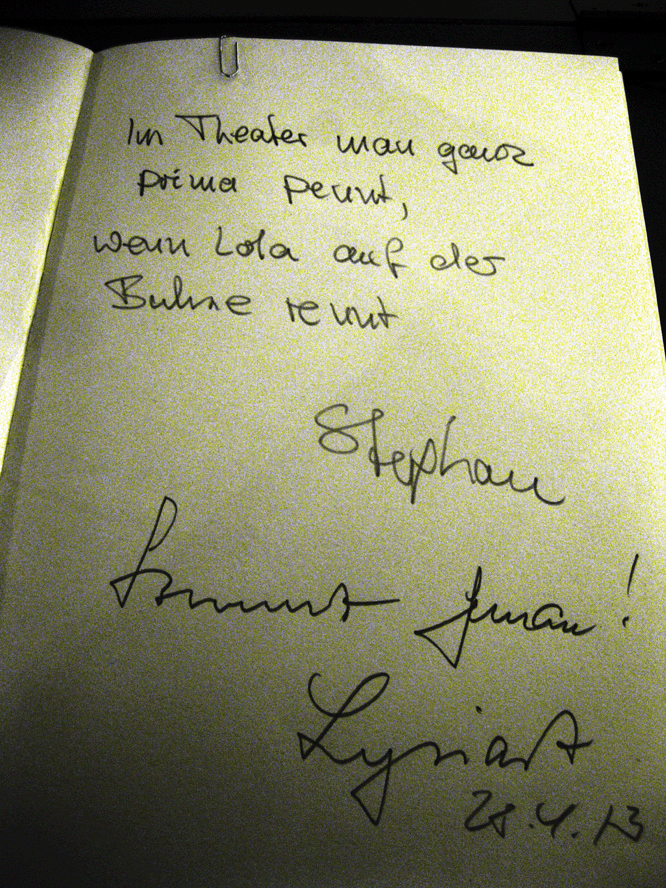 Im Theater man ganz
prima pennt,
wenn Lola auf der
Bühne rennt
Stephan
!
Lysiart
28.4.13